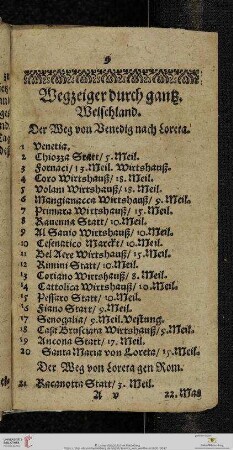 9
Wegzeiger durch gantz
Welschland.
Der Weg von Venedig nach Loreta.
1 Venetia.
2 Chiozza Statt / 5. Meil.
3 Fornaci / 15. Meil. Wirtshauß.
4 Coro Wirtshauß / 18. Meil.
5 Volani Wirtshauß / 18. Meil.
6 Mangianacca Wirtshauß / 9. Meil.
7 Primara Wirtshauß / 15. Meil.
8 Rauenna Statt / 10. Meil.
9 Al Sauio Wirtshauß / 10. Meil.
10 Cesenatico Marckt / 10. Meil.
11 Bel Aere Wirtshauß / 15. Meil.
12 Rimini Statt / 10. Meil.
13 Coriano Wirtshauß / 8. Meil.
14 Cattolica Wirtshauß / 10. Meil.
15 Pessaro Statt / 10. Meil.
16 Fiano Statt / 5. Meil.
17 Senogalia / 5. Meil. Vestung.
18 Case Brusciata Wirtshauß / 5. Meil.
19 Ancona Statt / 17. Meil.
20 Santa Maria von Loreta / 15. Meil.
Der Weg von Loreta gen Rom.
21 Racanotta Statt / 3. Meil.
A v
22. Mac